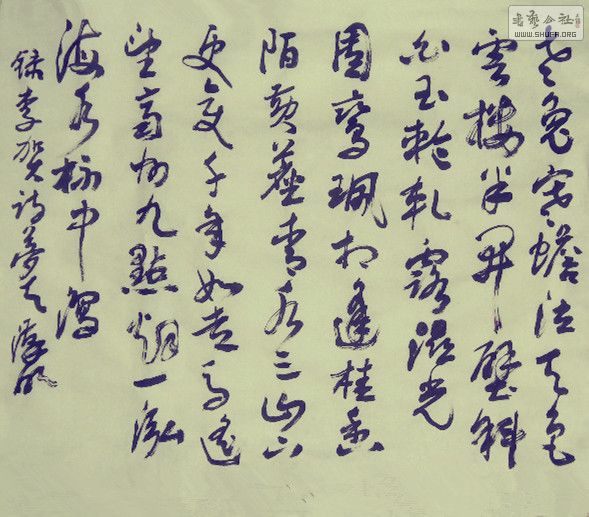 老兔寒蟾泣天色
雲樓半開壁斜
白玉輪軋露濕光
團鸞珮相逢桂香
陌黃塵清水三山下
更變千年如走馬遙
望齊州九點烟一泓
海水杯中瀉
錄李賀詩夢天
書藝公社
WWW.SHUFA.ORG